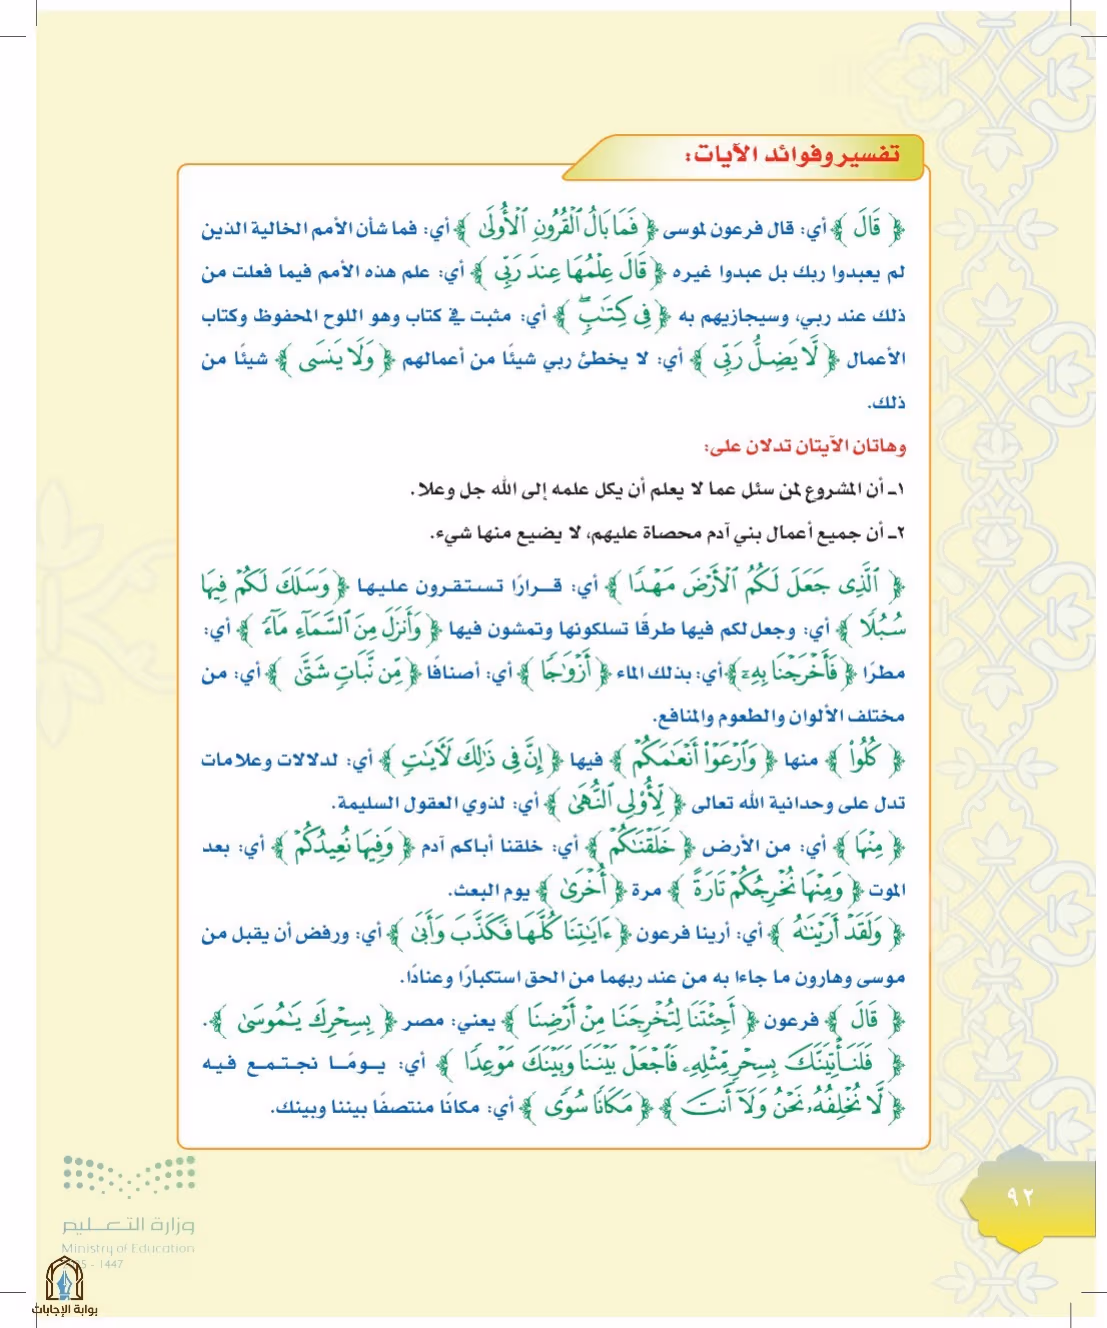 تفسير وفوائد الآيات:
﴿ قَالَ ﴾ أي: قال فرعون لموسى ﴿ فَمَا بَالُ ٱلْقُرُونِ ٱلْأُولَىٰ ﴾ أي: فما شأن الأمم الخالية الذين
لم يعبدوا ربك بل عبدوا غيره ﴿ قَالَ عِلْمُهَا عِندَ رَبِّى ﴾ أي: علم هذه الأمم فيما فعلت من
ذلك عند ربي، وسيجازيهم به ﴿ فِى كِتَٰبٍۖ ﴾ أي: مثبت في كتاب وهو اللوح المحفوظ وكتاب
الأعمال ﴿ لَّا يَضِلُّ رَبِّى ﴾ أي: لا يخطئ ربي شيئًا من أعمالهم ﴿ وَلَا يَنسَى ﴾ شيئًا من
ذلك.
وهاتان الآيتان تدلان على:
١ـ أن المشروع لمن سئل عما لا يعلم أن يكل علمه إلى الله جل وعلا.
٢ـ أن جميع أعمال بني آدم محصاة عليهم، لا يضيع منها شيء.
﴿ ٱلَّذِى جَعَلَ لَكُمُ ٱلْأَرْضَ مَهْدًا ﴾ أي: قــرارًا تستقرون عليها ﴿ وَسَلَكَ لَكُمْ فِيهَا
سُبُلًا ﴾ أي: وجعل لكم فيها طرقًا تسلكونها وتمشون فيها ﴿ وَأَنزَلَ مِنَ ٱلسَّمَآءِ مَآءً ﴾ أي:
مطرًا ﴿ فَأَخْرَجْنَا بِهِۦٓ ﴾ أي: بذلك الماء ﴿ أَزْوَٰجًا ﴾ أي: أصنافًا ﴿ مِّن نَّبَاتٍ شَتَّىٰ ﴾ أي: من
مختلف الألوان والطعوم والمنافع.
﴿ كُلُوا۟ ﴾ منها ﴿ وَٱرْعَوْا۟ أَنْعَٰمَكُمْ ﴾ فيها ﴿ إِنَّ فِى ذَٰلِكَ لَءَايَٰتٍ ﴾ أي: لدلالات وعلامات
تدل على وحدانية الله تعالى ﴿ لِّأُو۟لِى ٱلنُّهَىٰ ﴾ أي: لذوي العقول السليمة.
﴿ مِنْهَا ﴾ أي: من الأرض ﴿ خَلَقْنَٰكُمْ ﴾ أي: خلقنا أباكم آدم ﴿ وَفِيهَا نُعِيدُكُمْ ﴾ أي: بعد
الموت ﴿ وَمِنْهَا نُخْرِجُكُمْ تَارَةً ﴾ مرة ﴿ أُخْرَىٰ ﴾ يوم البعث.
﴿ وَلَقَدْ أَرَيْنَٰهُ ﴾ أي: أرينا فرعون ﴿ ءَايَٰتِنَا كُلَّهَا فَكَذَّبَ وَأَبَىٰ ﴾ أي: ورفض أن يقبل من
موسى وهارون ما جاءا به من عند ربهما من الحق استكبارًا وعنادًا.
﴿ قَالَ ﴾ فرعون ﴿ أَجِئْتَنَا لِتُخْرِجَنَا مِنْ أَرْضِنَا ﴾ يعني: مصر ﴿ بِسِحْرِكَ يَٰمُوسَىٰ ﴾.
﴿ فَلَنَأْتِيَنَّكَ بِسِحْرٍ مِّثْلِهِۦ فَٱجْعَلْ بَيْنَنَا وَبَيْنَكَ مَوْعِدًا ﴾ أي: يـومًـا نجتـمـع فيـه
﴿ لَّا نُخْلِفُهُۥ نَحْنُ وَلَآ أَنتَ ﴾ ﴿ مَكَانًا سُوًى ﴾ أي: مكانًا منتصفًا بيننا وبينك.
٩٢
وزارة التعـــليم
Ministry of Education
- 1447
بوابة الإجابات